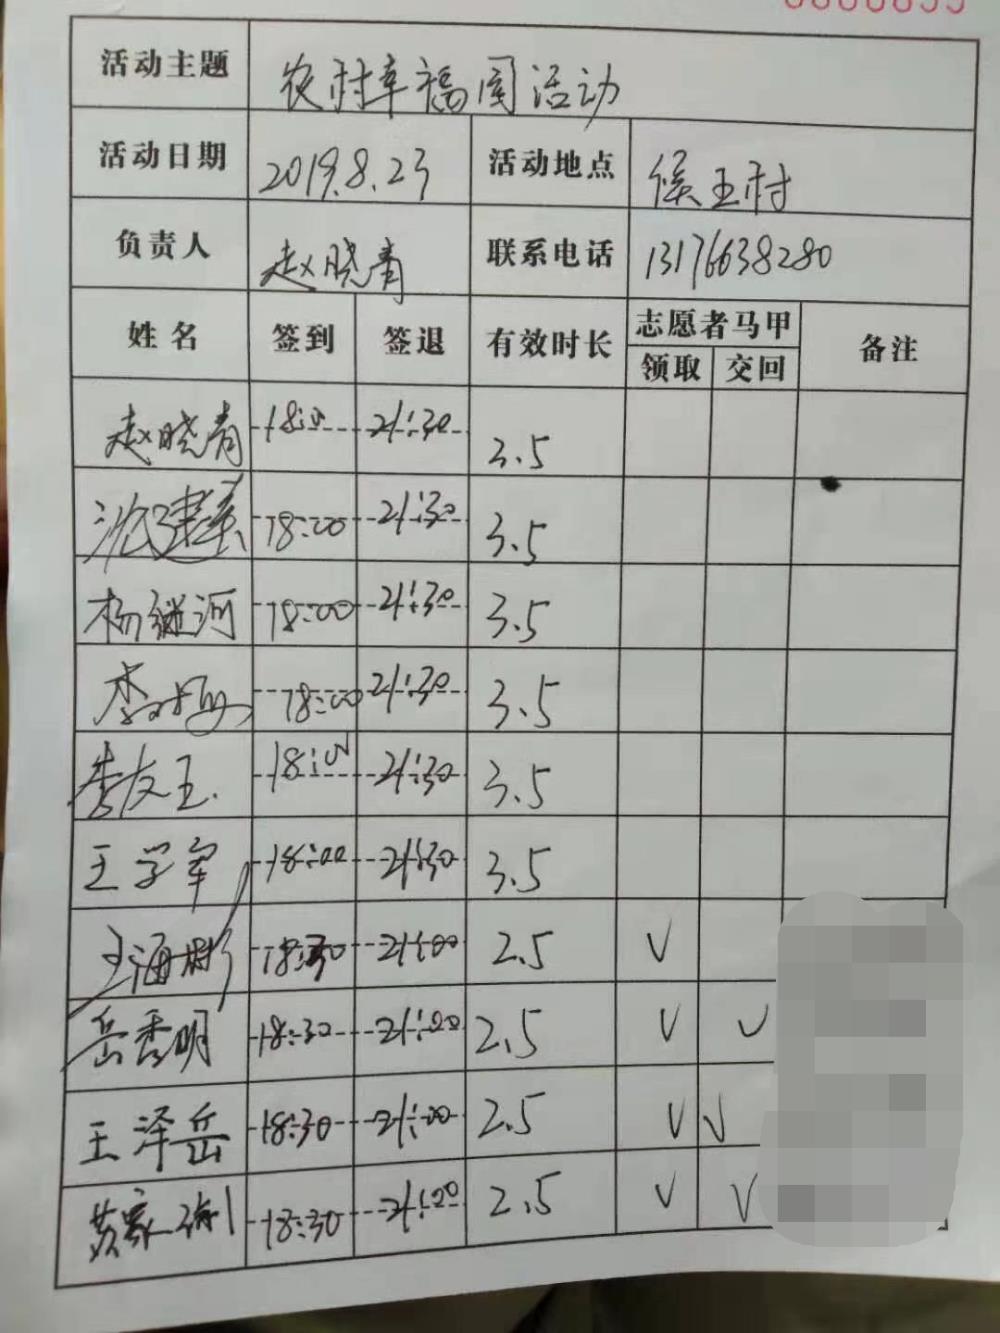 活动主题 农村幸福圆活动
活动日期 2019.8.23 活动地点 侯王村
负责人 赵晓青 联系电话 13176638280
姓名 签到 签退 有效时长 志愿者马甲 备注
领取 交回
赵晓青 18:00 21:30 3.5
18:00 21:30 3.5
杨继河 18:00 21:30 3.5
18:00 21:30 3.5
李友玉 18:00 21:30 3.5
王学军 18:00 21:30 3.5
王海彬 18:30 21:00 2.5 √
岳秀明 18:30 21:00 2.5 √ √
王泽岳 18:30 21:00 2.5 √ √
黄家 18:30 21:00 2.5 √ √